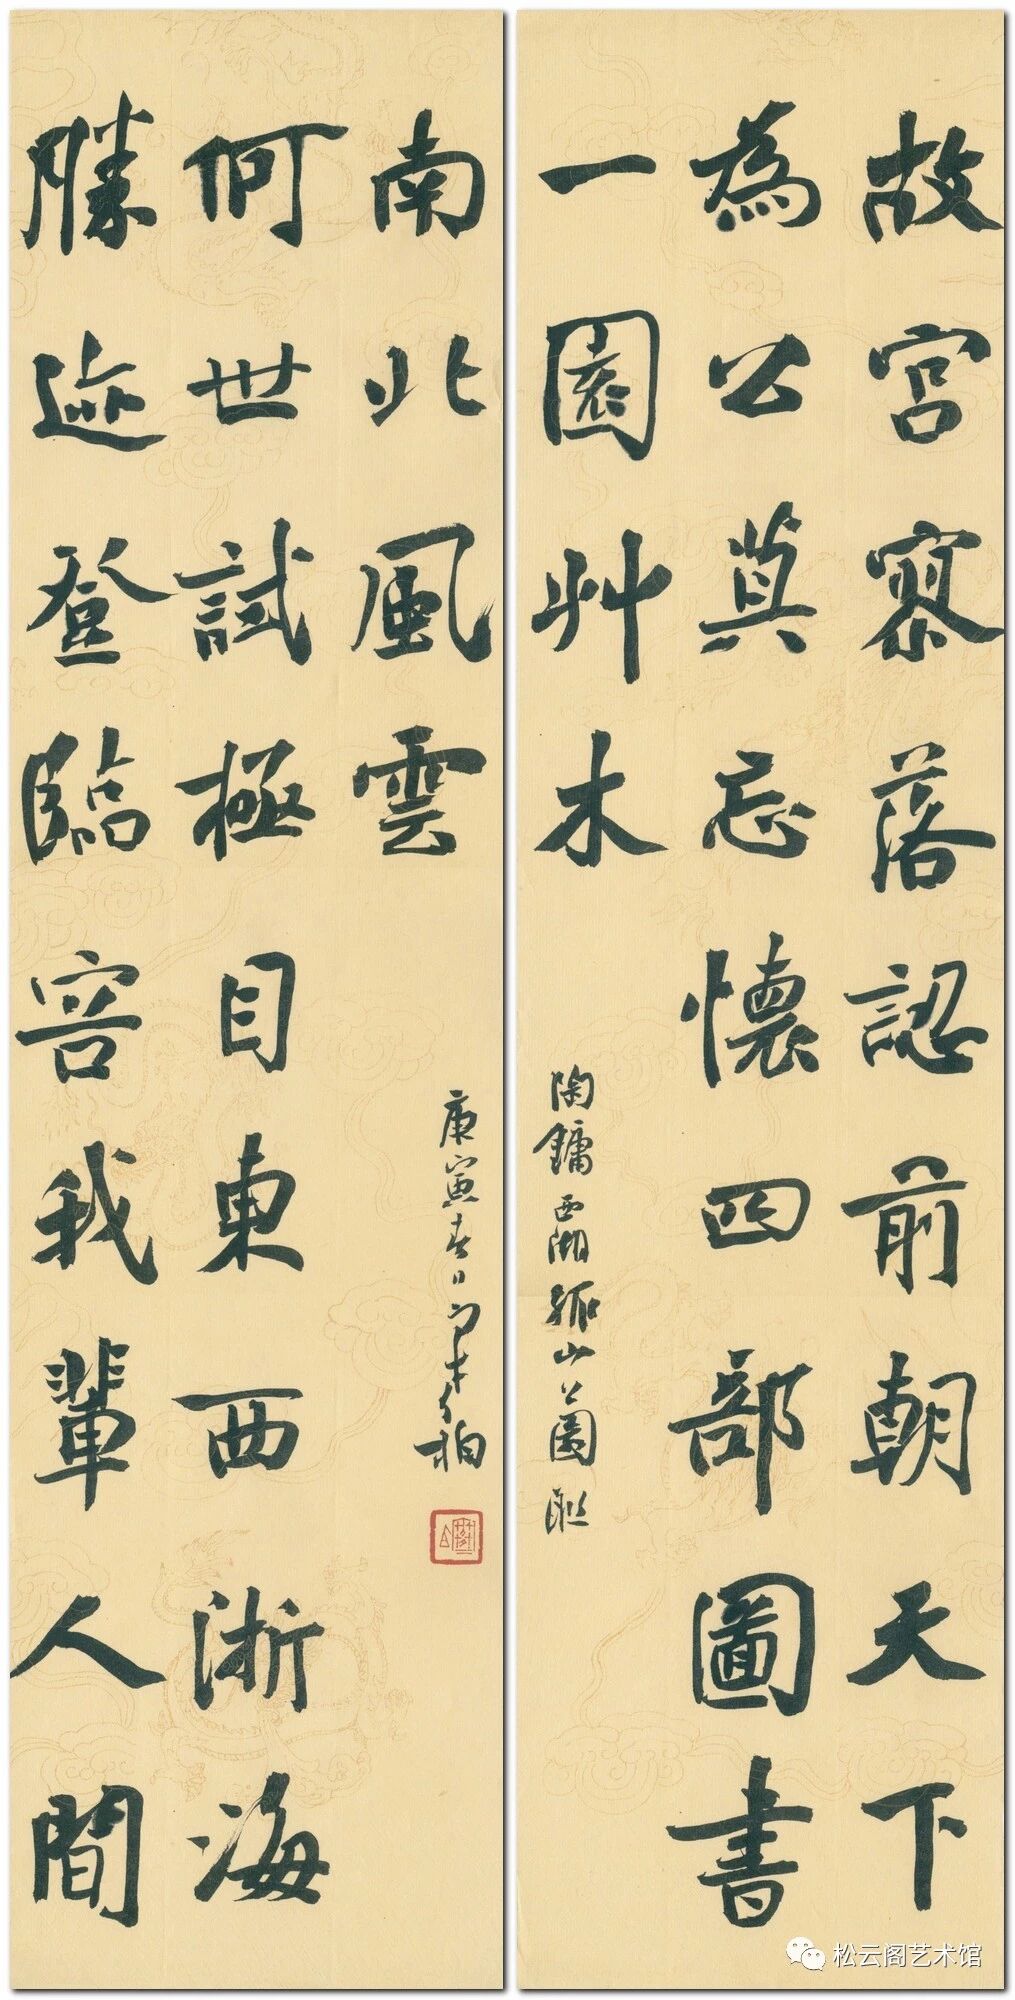 故宫寥落認前朝天下
為公莫忘懷四部圖書
一園艸木
陶鏞西湖孤山公園联
勝迹登臨容我輩人間
何世試極目東西浙海
南北風雲
庚寅春日 柏
松云阁艺术馆